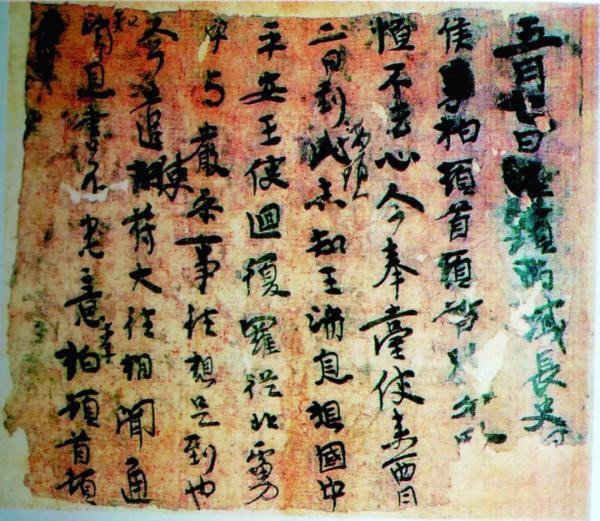 五月七日海頭西域長史
侯柏頓首頓首別
恒不去心今奉臺使來西月
二日到此海頭未知王消息想國中
平安王使迴復羅從北虜
中与嚴参事往想是到也
今遣使苻大往相聞通
知消息書不悉意李柏頓首頓